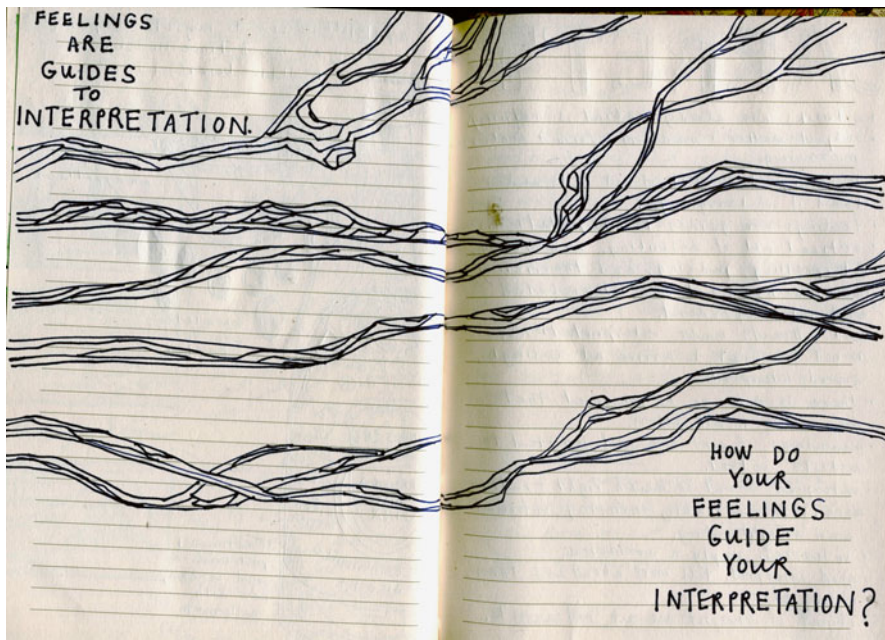 FEELINGS
ARE
GUIDES
TO
INTERPRETATION.
HOW DO
YOUR
FEELINGS
GUIDE
YOUR
INTERPRETATION?